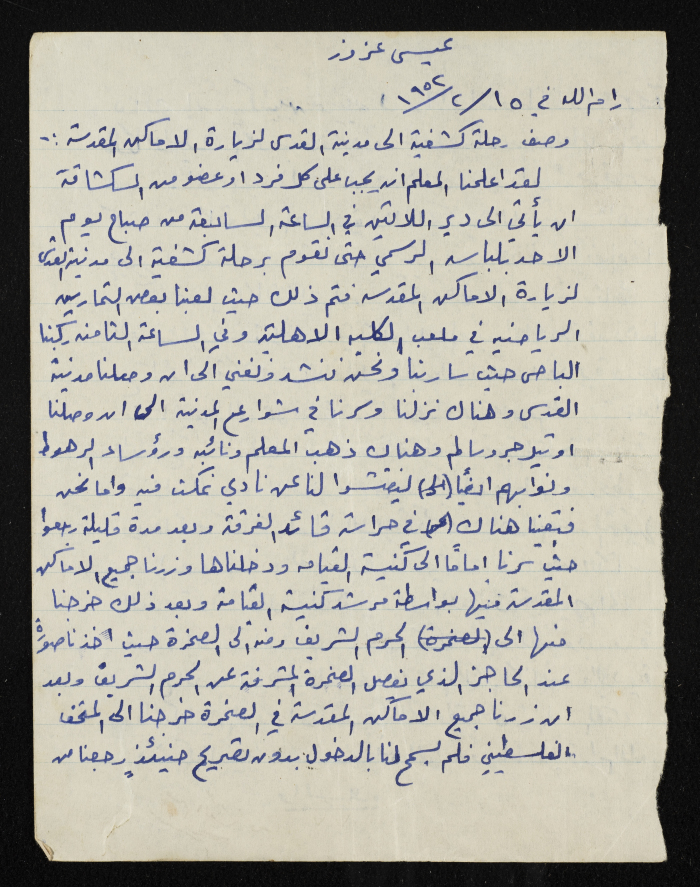 عيسى عزوز
رام الله في ١٥/٢/١٩٥٢
وصف رحلة كشفية الى مدينة القدس لزيارة الاماكن المقدسة :-
لقد اعلمنا المعلم انه يجب على كل فرد او عضو من الكشافة
ان يأتي الى دير اللاتين في الساعة السابعة من صباح يوم
الاحد بلباسه الرسمي حتى نقوم برحلة كشفية الى مدينة القدس
لزيارة الاماكن المقدسه فتم ذلك حيث لعبنا بعض التمارين
الرياضيه في ملعب الكليه الاهلية وفي الساعة الثامنه ركبنا
الباص حيث سار بنا ونحن ننشد ونغني الى ان وصلنا مدينة
القدس وهناك نزلنا وسرنا في شوارع المدينة الى ان وصلنا
اوتيل جروسالم وهناك ذهب المعلم ونائبه ورؤساء الرهوط
ونوابهم ايضًا (الى) ليفتشوا لنا عن نادي نمكث فيه واما نحن
فبقينا هناك في حراسة قائد الفرقة وبعد مدة قليلة رجعوا
حيث سرنا امامًا الى كنيسة القيامه ودخلناها وزرنا جميع الاماكن
المقدسة فيها بواسطة مرشد كنيسة القيامة وبعد ذلك خرجنا
منها الى (الصخرة) الحرم الشريف ومنه الى الصخرة حيث اخذنا صورةً
عند الحاجز الذي يفصل الصخرة المشرفة عن الحرم الشريف وبعد
ان زرنا جميع الاماكن المقدسة في الصخرة خرجنا الى المتحف
الفلسطيني فلم يسمح لنا بالدخول بدون تصريح حينئذٍ رجعنا من